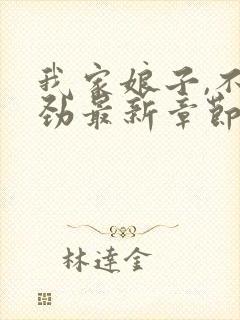 我家娘子,不
劲最新章節
林達金